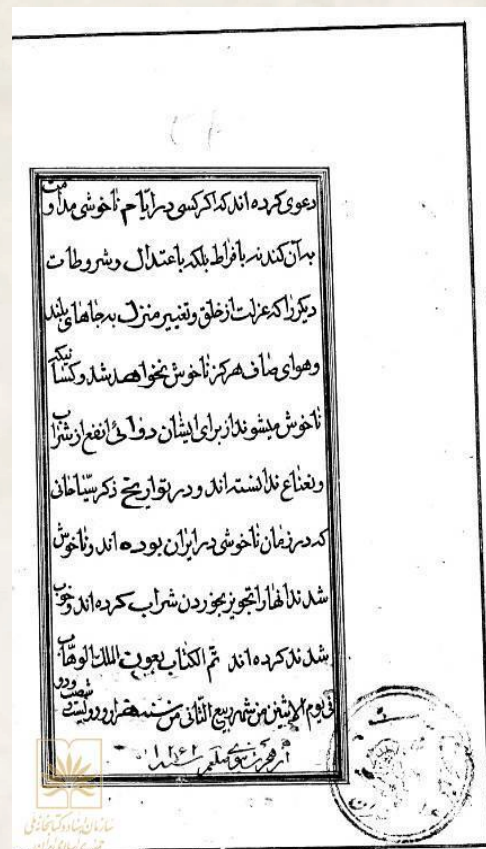 دعوی کرده اند که اکر کسی در ایّام ناخوشی مداومت
به آن کند نه بافراط بلکه باعتدال و شروطات
دیکر را که عزلت از خلق و تغییر منزل به جاهای بلند
و هوای صاف هرکز ناخوش نخواهد شد و کسانیکه
ناخوش میشوند از برای ایشان دوائی انفع از شراب
و نعناع ندانسته اند و در تواریخ ذکر سیّاحانی
که در زمان ناخوشی در ایران بوده اند و ناخوش
شدند انها را تجویز بخوردن شراب کرده اند و خوب
شدند کرده اند تم الکتاب بعون الملك الوهاب
فی یوم الاثنین من شهر ربیع الثانی من سنه هزار و دویست و شصت و دو
از هجرت نبوی صلعم سنه ۱۲۶۲
سازمان اسناد و کتابخانه ملی
جمهوری اسلامی ایران